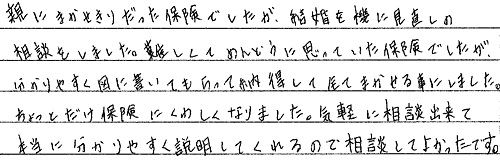 親にまかせきりだった保険でしたが、結婚を機に見直しの
相談をしました。難しくてめんどうに思っていた保険でしたが、
分かりやすく図に書いてもらって納得して全てまかせる事にしました。
ちょっとだけ保険にくわしくなりました。気軽に相談出来て
本当に分かりやすく説明してくれるので相談してよかったです。